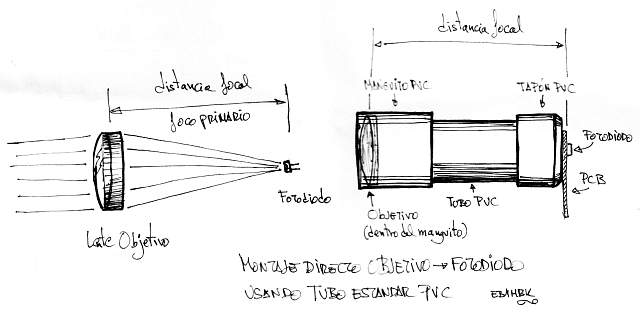 distancia focal
foco PRIMARIO
FOTODIODO
Lente Objetivo
distancia focal
MANGUITO PVC
TAPÓN PVC
FOTODIODO
PCB
TUBO PVC
OBJETIVO
(dentro del manguito)
MONTAJE DIRECTO OBJETIVO → FOTODIODO
USANDO TUBO ESTANDAR PVC